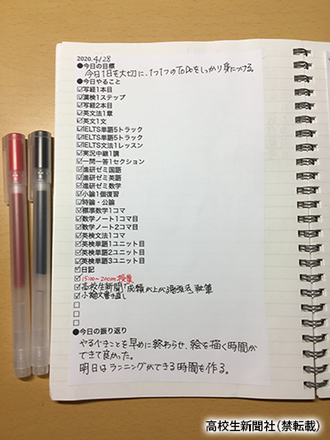 2020.4/28
●今日の目標
今日1日を大切に、1つ1つのToDoをしっかり身につける。
●今日やること
☑写経1本目
☑漢検1ステップ
☑写経2本目
☑英文法1章
☑英文1文
☑IELTS単語5トラック
☑IELTS単語5トラック
☑IELTS文法1レッスン
☑実況中継1講
☑一問一答1セクション
☑進研ゼミ国語
☑進研ゼミ英語
☑進研ゼミ数学
☑小論1個復習
☑特論・公論
☑標準数学1コマ
☑数学ノート1コマ目
☑数学ノート2コマ目
☑英検文法1コマ
☑英検単語1ユニット目
☑英検単語2ユニット目
☑英検単語3ユニット目
☑日記
☑15:00~20:00 授業
☑高校生新聞「成績が上がる勉強法」執筆
☑小論文書き直し
□
□
□
●今日の振り返り
やるべきことを早めに終わらせ、絵を描く時間が
できて良かった。
明日はランニングができる時間を作る。
高校生新聞社(禁転載)